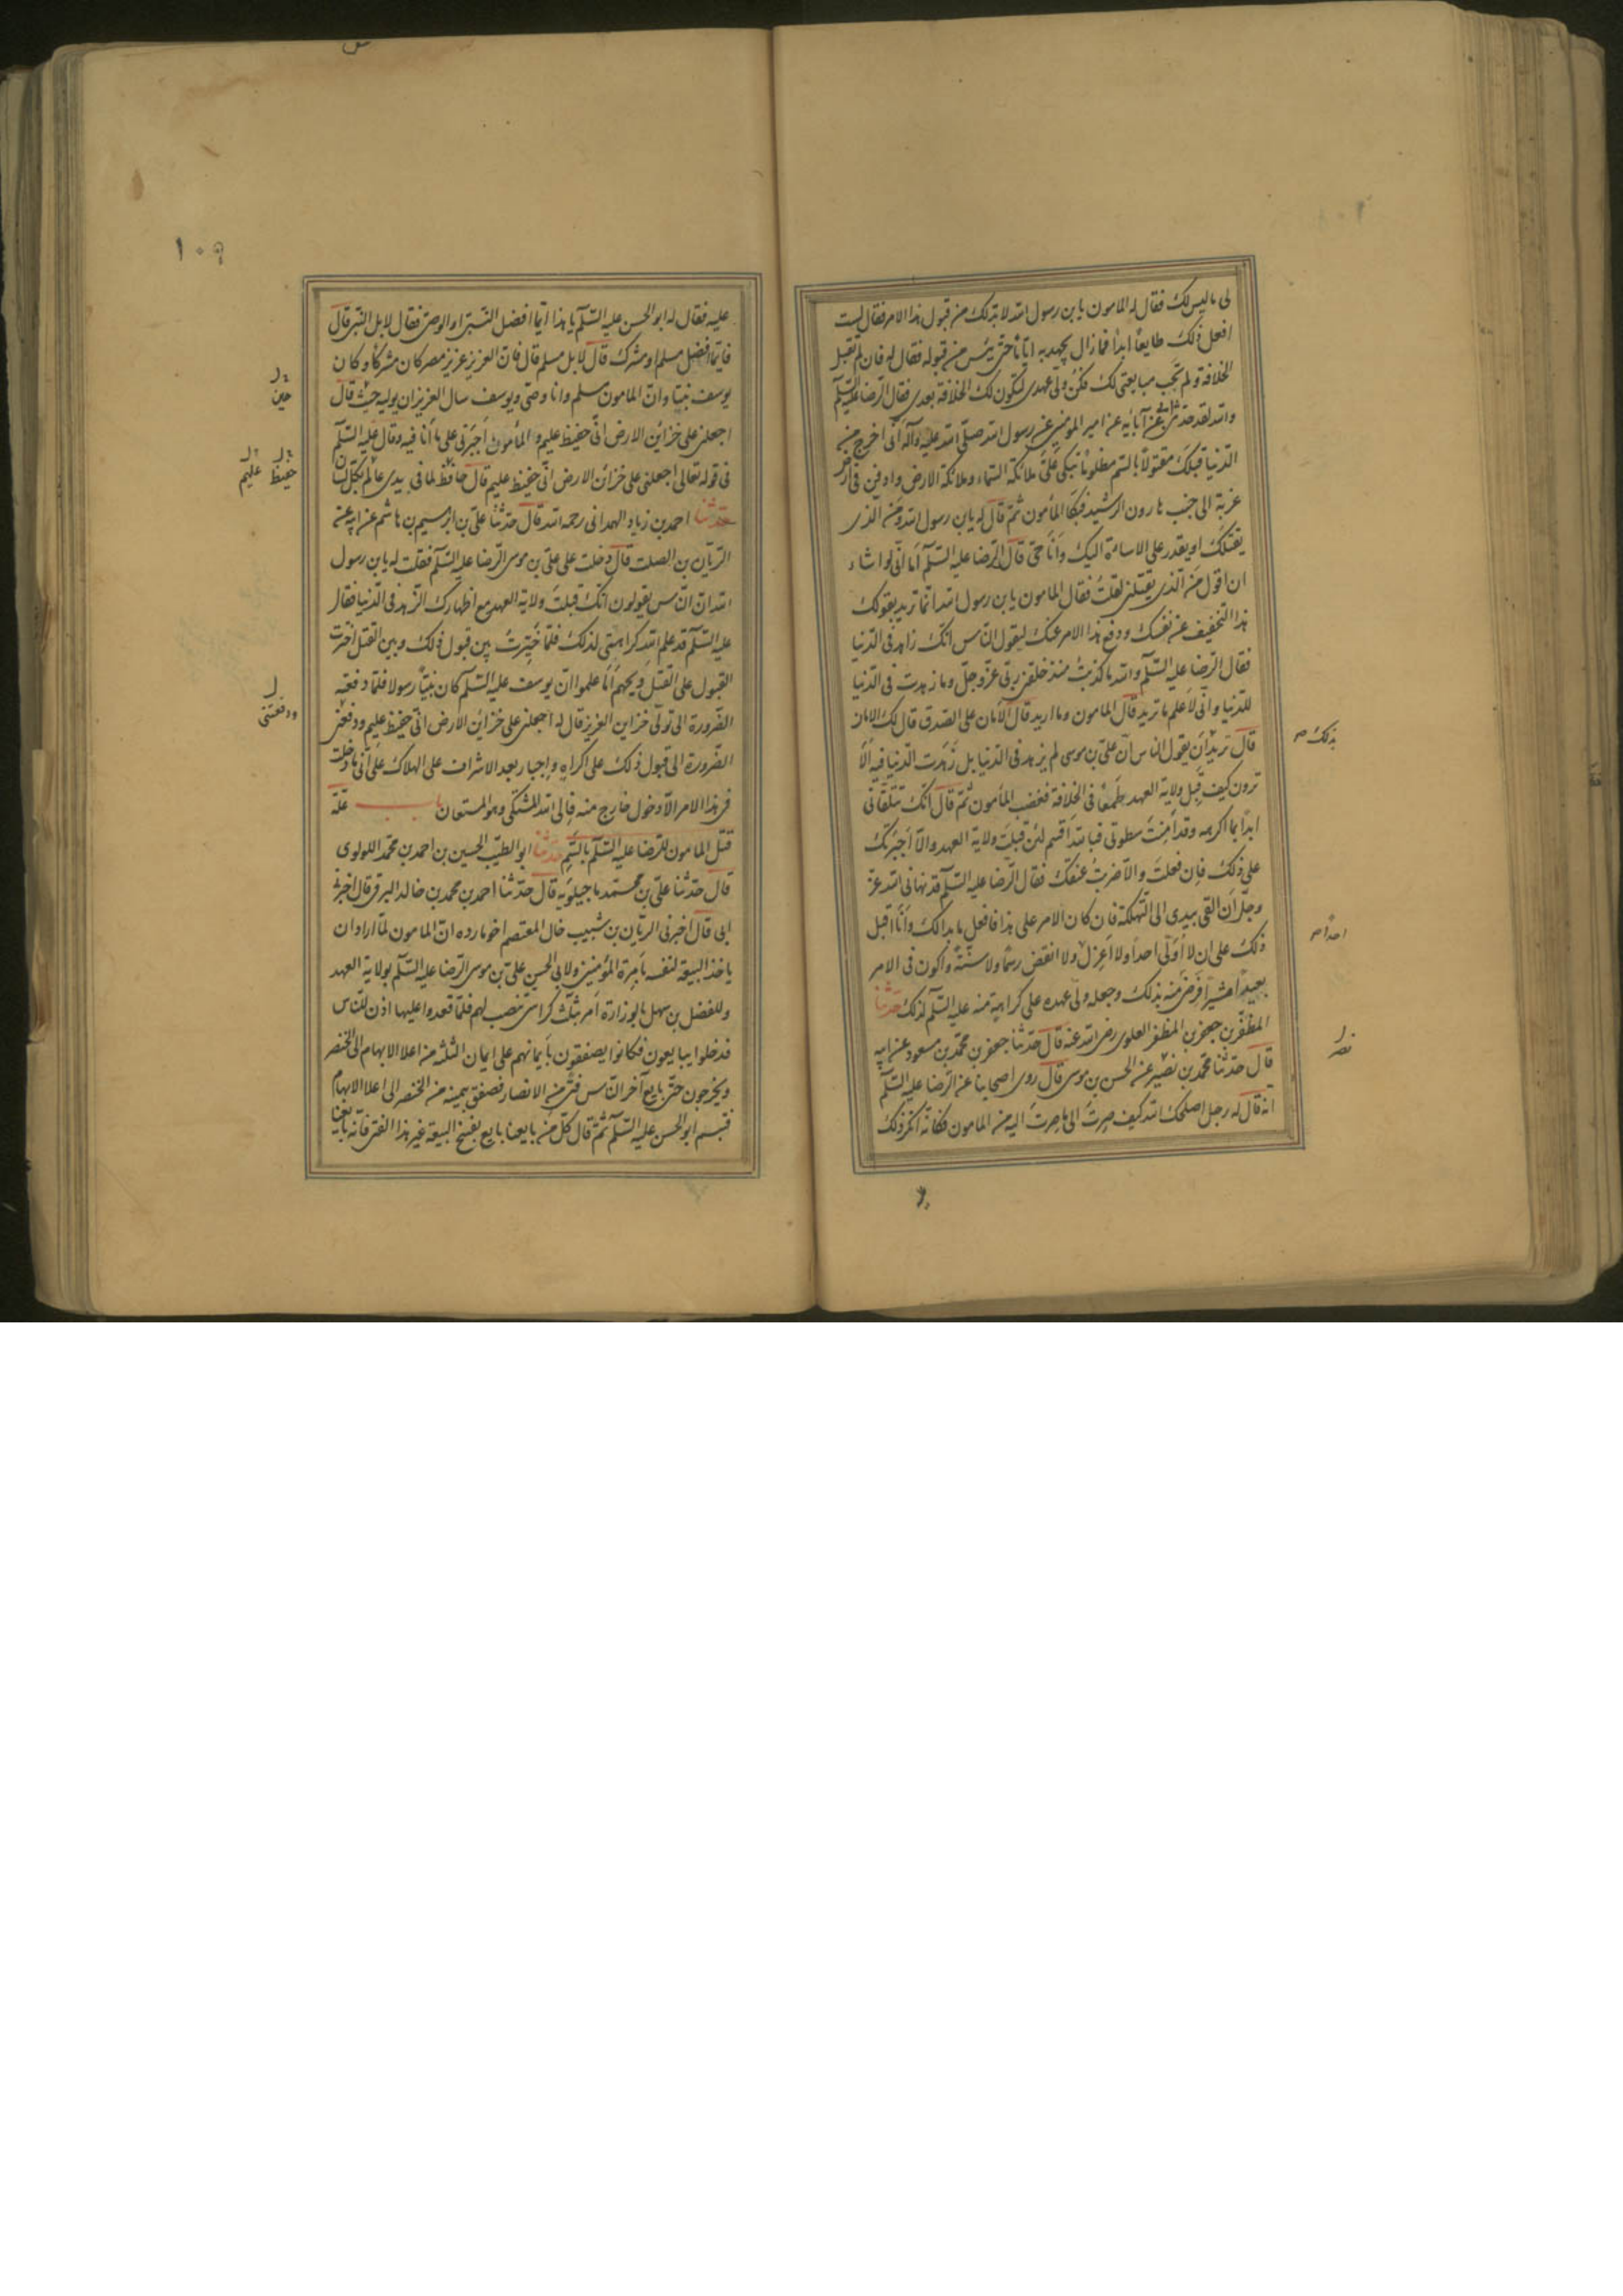 لى ما ليس لك فقال له المامون يا بن رسول الله لا بد لك من قبول هذا الامر فقال لست
افعل ذلك طايعًا ابدًا فما زال يجهد به ايامًا حتى يئس من قبوله فقال له فان لم تقبل
الخلافة ولم تحب مبايعتى لك فكن ولى عهدى لتكون لك الخلافة بعدى فقال الرضا عليه السلم
والله لقد حدثنى ابى عن آبائه عن امير المؤمنين عن رسول الله صلى الله عليه وآله انى اخرج من
الدنيا قبلك مقتولًا بالسم مظلومًا تبكى علىّ ملائكة السماء وملائكة الارض وادفن فى ارض
غربة الى جنب هارون الرشيد فبكا المأمون ثم قال له يا بن رسول الله ومن الذى
يقتلك او يقدر على الاساءة اليك وانا حىّ قال الرضا عليه السلم اما انى لو اشاء
ان اقول من الذى يقتلنى لقلت فقال المامون يا بن رسول الله انما تريد بقولك
هذا التخفيف عن نفسك ودفع هذا الامر عنك ليقول الناس انك زاهد فى الدنيا
فقال الرضا عليه السلم والله ما كذبت منذ خلقنى ربى عز وجل وما زهدت فى الدنيا
للدنيا وانى لاعلم ما تريد قال المامون وما اريد قال الامان على الصدق قال لك الامان
قال تريد ان يقول الناس ان على بن موسى لم يزهد فى الدنيا بل زهدت الدنيا فيه الا
بذلك صح
ترون كيف قبل ولاية العهد طمعًا فى الخلافة فغضب المأمون ثم قال انك تتلقانى
ابدًا بما اكرهه وقد امنت سطوتى فبالله اقسم لئن قبلت ولاية العهد والا اجبرتك
على ذلك فان فعلت والا ضربت عنقك فقال الرضا عليه السلم قد نهانى الله عز
وجل ان القى بيدى الى التهلكة فان كان الامر على هذا فافعل ما بدا لك وانا اقبل
ذلك على ان لا اولّى احدًا ولا اعزل ولا انقض رسمًا ولا سنّة واكون فى الامر
احدًا صح
بعيدًا مشيرًا فرضى منه بذلك وجعله ولى عهده على كراهية منه عليه السلم لذلك حدثنا
المظفر بن جعفر بن المظفر العلوى رضى الله عنه قال حدثنا جعفر بن محمد بن مسعود عن ابيه
قال حدثنا محمد بن نصير عن الحسن بن موسى قال روى اصحابنا عن الرضا عليه السلم
نصر
انه قال له رجل اصلحك الله كيف صرت الى ما صرت اليه من المامون فكانه انكر ذلك
١٠٩
عليه فقال له ابو الحسن عليه السلم يا هذا ايما افضل النبى او الوصى فقال لا بل النبى قال
فايما افضل مسلم او مشرك قال لا بل مسلم قال فان العزيز عزيز مصر كان مشركًا وكان
يوسف نبيًا وان المامون مسلم وانا وصى ويوسف سال العزيز ان يوليه حيث قال
حين
اجعلنى على خزاين الارض انى حفيظ عليم والمأمون اجبرنى على ما انا فيه وقال عليه السلم
فى قوله تعالى اجعلنى على خزائن الارض انى حفيظ عليم قال حافظ لما فى يدى عالم بكل لسان
حفيظ عليم
حدثنا احمد بن زياد الهمدانى رحمه الله قال حدثنا على بن ابرهيم بن هاشم عن ابيه عن
الريان بن الصلت قال دخلت على على بن موسى الرضا عليه السلم فقلت له يا بن رسول
الله ان الناس يقولون انك قبلت ولاية العهد مع اظهارك الزهد فى الدنيا فقال
عليه السلم قد علم الله كراهتى لذلك فلما خيرت بين قبول ذلك وبين القتل اخترت
القبول على القتل ويحهم اما علموا ان يوسف عليه السلم كان نبيًا رسولا فلما دفعته
الضرورة الى تولى خزاين العزيز قال له اجعلنى على خزاين الارض انى حفيظ عليم ودفعتنى
ودفعتنى
الضرورة الى قبول ذلك على اكراه واجبار بعد الاشراف على الهلاك على انى ما دخلت
فى هذا الامر الا دخول خارج منه فالى الله المشتكى وهو المستعان باب علة
قتل المامون للرضا عليه السلم بالسم حدثنا ابو الطيب الحسين بن احمد بن محمد اللولوى
قال حدثنا على بن محمد ماجيلويه قال حدثنا احمد بن محمد بن خالد البرقى قال اخبرنى
ابى قال اخبرنى الريان بن شبيب خال المعتصم اخو مارده ان المامون لما اراد ان
ياخذ البيعة لنفسه بامرة المؤمنين ولابى الحسن على بن موسى الرضا عليه السلم بولاية العهد
وللفضل بن سهل بالوزارة امر بثلث كراسى تنصب لهم فلما قعدوا عليها اذن للناس
فدخلوا يبايعون فكانوا يصفقون بايمانهم على ايمان الثلثه من اعلا الابهام الى الخنصر
ويخرجون حتى بايع آخر الناس فتى من الانصار فصفق بيمينه من الخنصر الى اعلا الابهام
فتبسم ابو الحسن عليه السلم ثم قال كل من بايعنا بايع بفسخ البيعة غير هذا الفتى فانه بايعنا